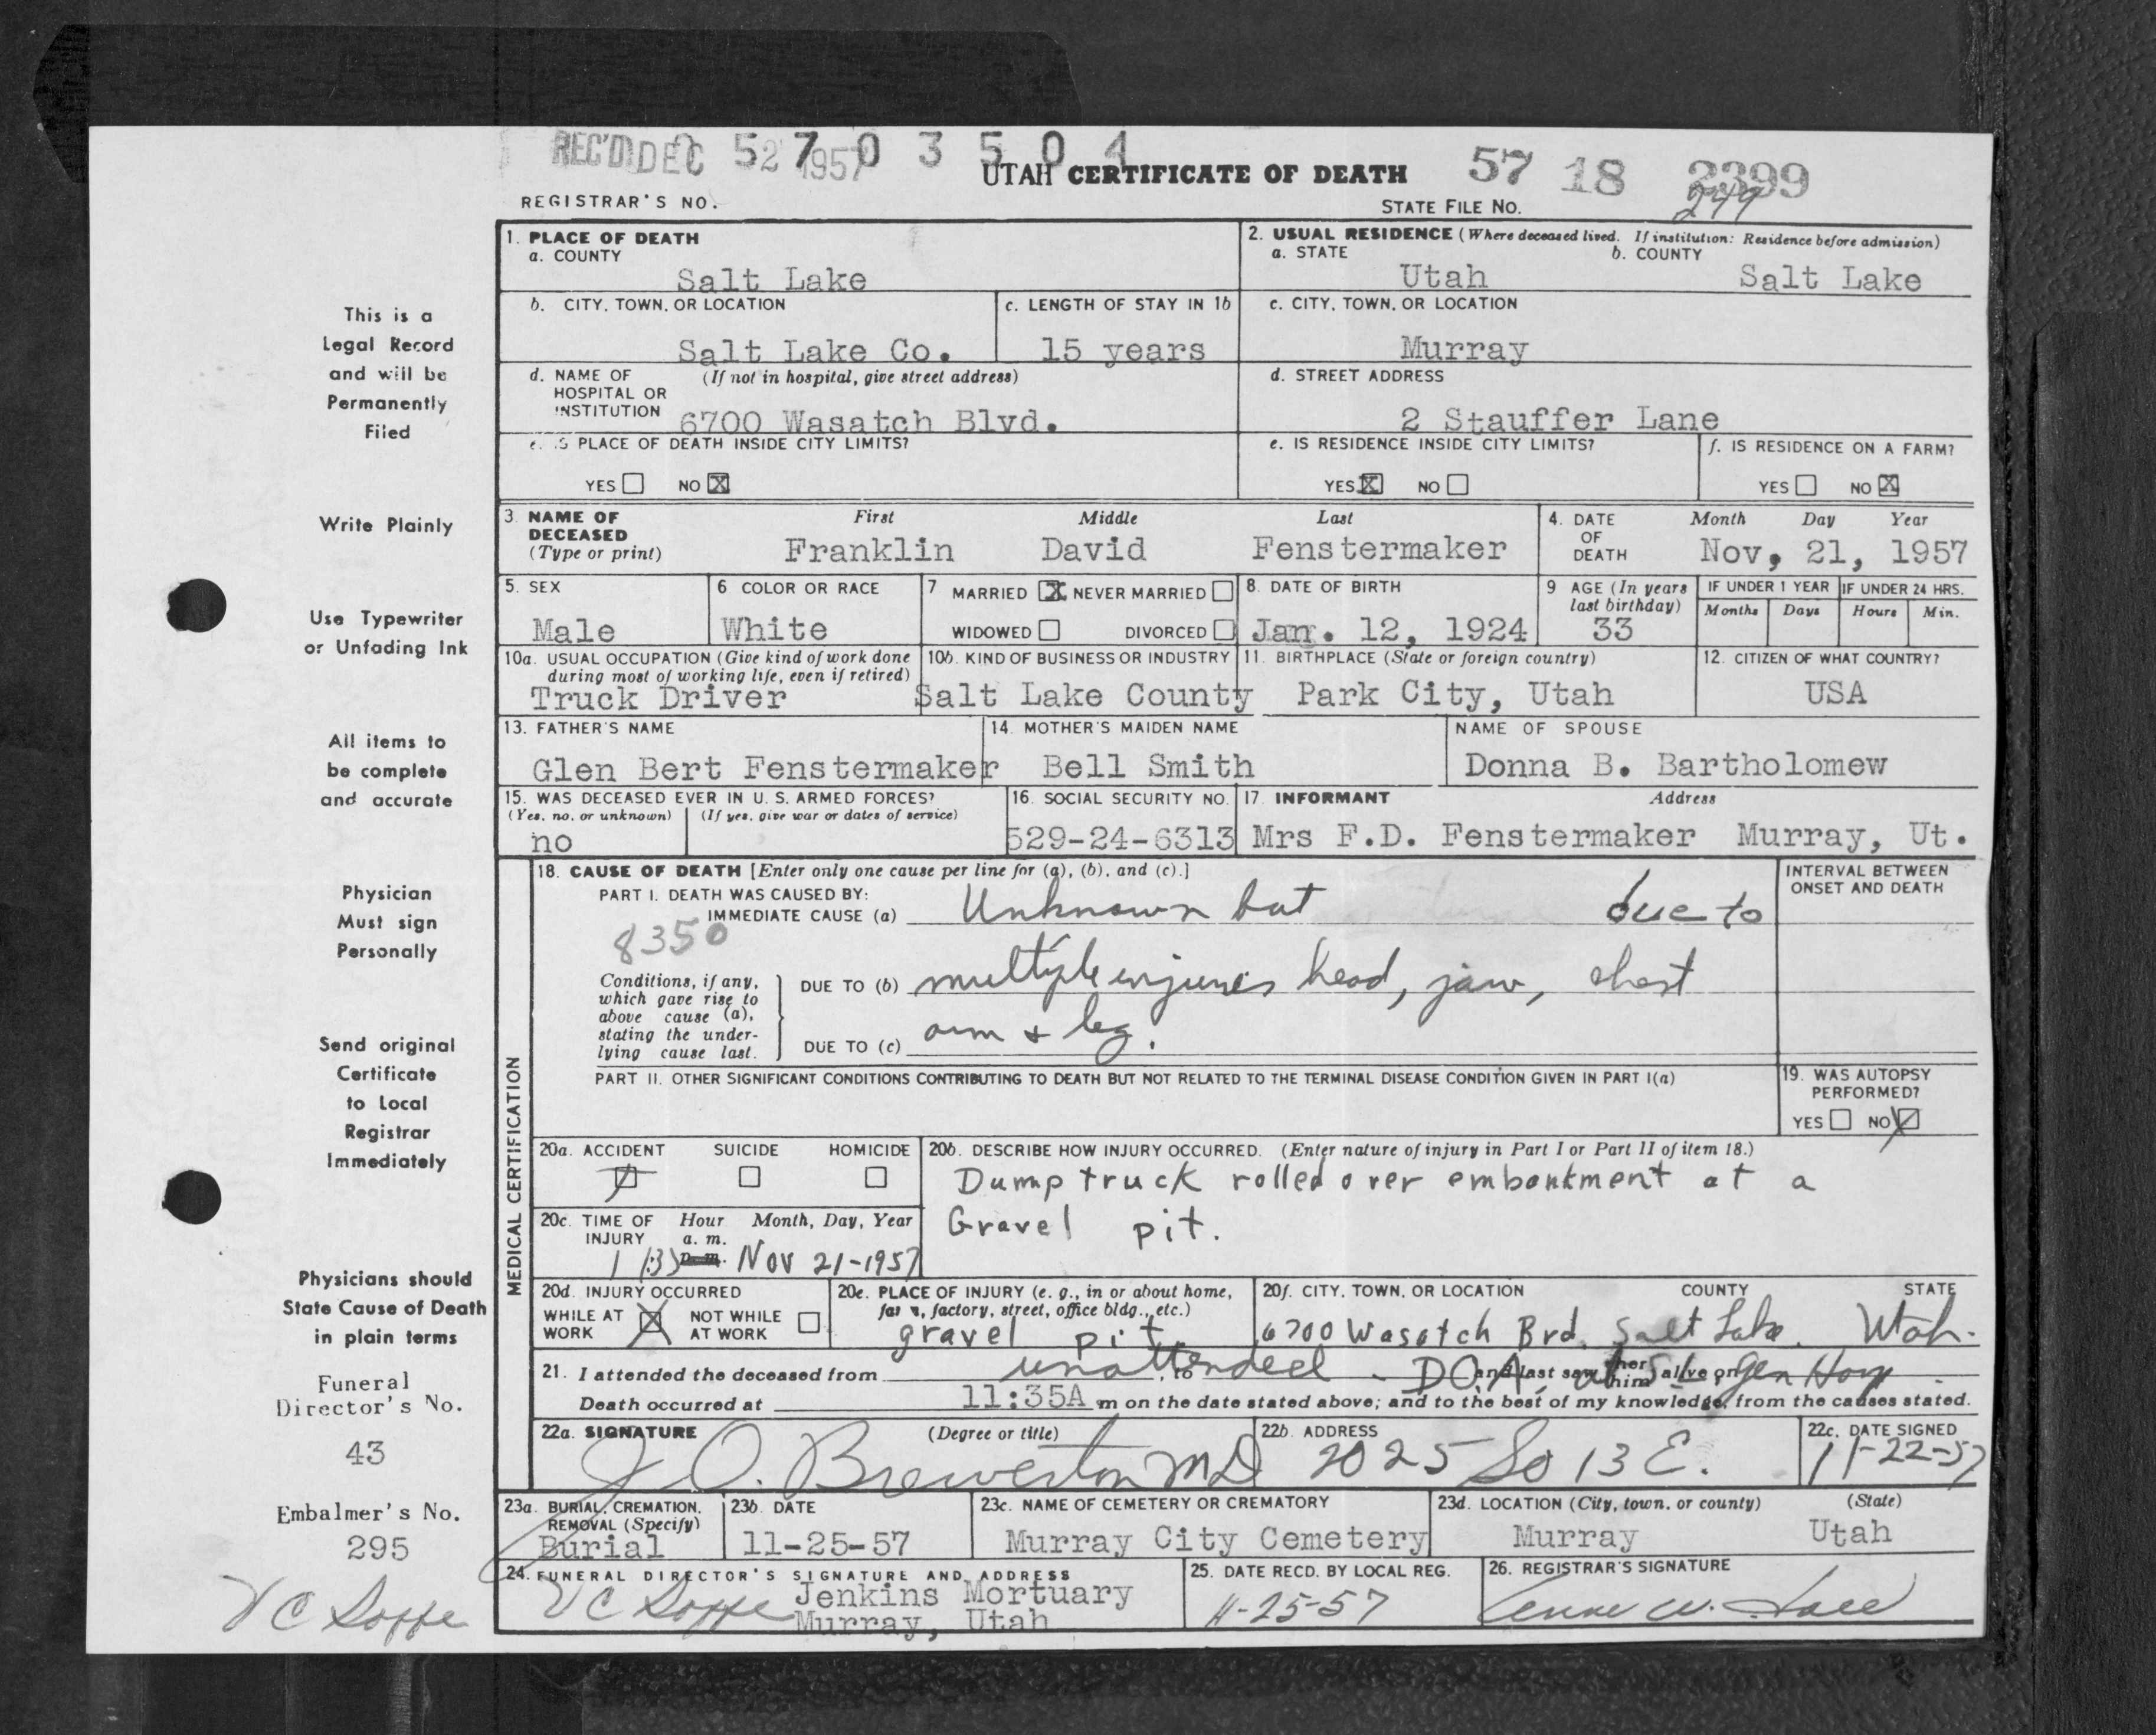 REC'D DEC 2 1957
5 7 0 3 5 0 4
UTAH CERTIFICATE OF DEATH
57 18 2399
249
REGISTRAR'S NO.
STATE FILE NO.
This is a
Legal Record
and will be
Permanently
Filed
Write Plainly
Use Typewriter
or Unfading Ink
All items to
be complete
and accurate
Physician
Must sign
Personally
Send original
Certificate
to Local
Registrar
Immediately
Physicians should
State Cause of Death
in plain terms
Funeral
Director's No.
43
Embalmer's No.
295
1. PLACE OF DEATH
a. COUNTY
Salt Lake
2. USUAL RESIDENCE (Where deceased lived. If institution: Residence before admission)
a. STATE b. COUNTY
Utah Salt Lake
b. CITY, TOWN, OR LOCATION
Salt Lake Co.
c. LENGTH OF STAY IN 1b
15 years
c. CITY, TOWN, OR LOCATION
Murray
d. NAME OF (If not in hospital, give street address)
HOSPITAL OR
INSTITUTION 6700 Wasatch Blvd.
d. STREET ADDRESS
2 Stauffer Lane
e. IS PLACE OF DEATH INSIDE CITY LIMITS?
YES NO X
e. IS RESIDENCE INSIDE CITY LIMITS?
YES X NO
f. IS RESIDENCE ON A FARM?
YES NO X
3. NAME OF First Middle Last
DECEASED
(Type or print) Franklin David Fenstermaker
4. DATE Month Day Year
OF
DEATH Nov, 21, 1957
5. SEX
Male
6 COLOR OR RACE
White
7 MARRIED X NEVER MARRIED
WIDOWED DIVORCED
8. DATE OF BIRTH
Jan. 12, 1924
9 AGE (In years
last birthday)
33
IF UNDER 1 YEAR IF UNDER 24 HRS.
Months Days Hours Min.
10a. USUAL OCCUPATION (Give kind of work done
during most of working life, even if retired)
Truck Driver
10b. KIND OF BUSINESS OR INDUSTRY
Salt Lake County
11. BIRTHPLACE (State or foreign country)
Park City, Utah
12. CITIZEN OF WHAT COUNTRY?
USA
13. FATHER'S NAME
Glen Bert Fenstermaker
14. MOTHER'S MAIDEN NAME
Bell Smith
NAME OF SPOUSE
Donna B. Bartholomew
15. WAS DECEASED EVER IN U. S. ARMED FORCES?
(Yes, no, or unknown) (If yes, give war or dates of service)
no
16. SOCIAL SECURITY NO.
529-24-6313
17. INFORMANT Address
Mrs F.D. Fenstermaker Murray, Ut.
MEDICAL CERTIFICATION
18. CAUSE OF DEATH [Enter only one cause per line for (a), (b), and (c).]
INTERVAL BETWEEN
ONSET AND DEATH
PART I. DEATH WAS CAUSED BY:
IMMEDIATE CAUSE (a) Unknown but due to
8350
Conditions, if any,
which gave rise to
above cause (a),
stating the under-
lying cause last.
DUE TO (b) multiple injuries head, jaw, chest
DUE TO (c) arm & leg.
PART II. OTHER SIGNIFICANT CONDITIONS CONTRIBUTING TO DEATH BUT NOT RELATED TO THE TERMINAL DISEASE CONDITION GIVEN IN PART I(a)
19. WAS AUTOPSY
PERFORMED?
YES NO X
20a. ACCIDENT SUICIDE HOMICIDE
20b. DESCRIBE HOW INJURY OCCURRED. (Enter nature of injury in Part I or Part II of item 18.)
Dump truck rolled over embankment at a
Gravel pit.
20c. TIME OF Hour Month, Day, Year
INJURY a. m.
p. m. Nov 21-1957
20d. INJURY OCCURRED
WHILE AT WORK X NOT WHILE AT WORK
20e. PLACE OF INJURY (e. g., in or about home,
farm, factory, street, office bldg., etc.)
gravel pit.
20f. CITY, TOWN, OR LOCATION COUNTY STATE
6700 Wasatch Bvd. Salt Lake. Utah.
21. I attended the deceased from unattended, to - D.O.A. and last saw her him alive on at S L Gen Hosp
Death occurred at 11:35A m on the date stated above; and to the best of my knowledge, from the causes stated.
22a. SIGNATURE (Degree or title)
J O. Brewerton MD
22b. ADDRESS
2025 So 13 E.
22c. DATE SIGNED
11-22-57
23a. BURIAL, CREMATION,
REMOVAL (Specify)
Burial
23b. DATE
11-25-57
23c. NAME OF CEMETERY OR CREMATORY
Murray City Cemetery
23d. LOCATION (City, town, or county) (State)
Murray Utah
24. FUNERAL DIRECTOR'S SIGNATURE AND ADDRESS
Jenkins Mortuary
Murray, Utah
25. DATE RECD. BY LOCAL REG.
11-25-57
26. REGISTRAR'S SIGNATURE